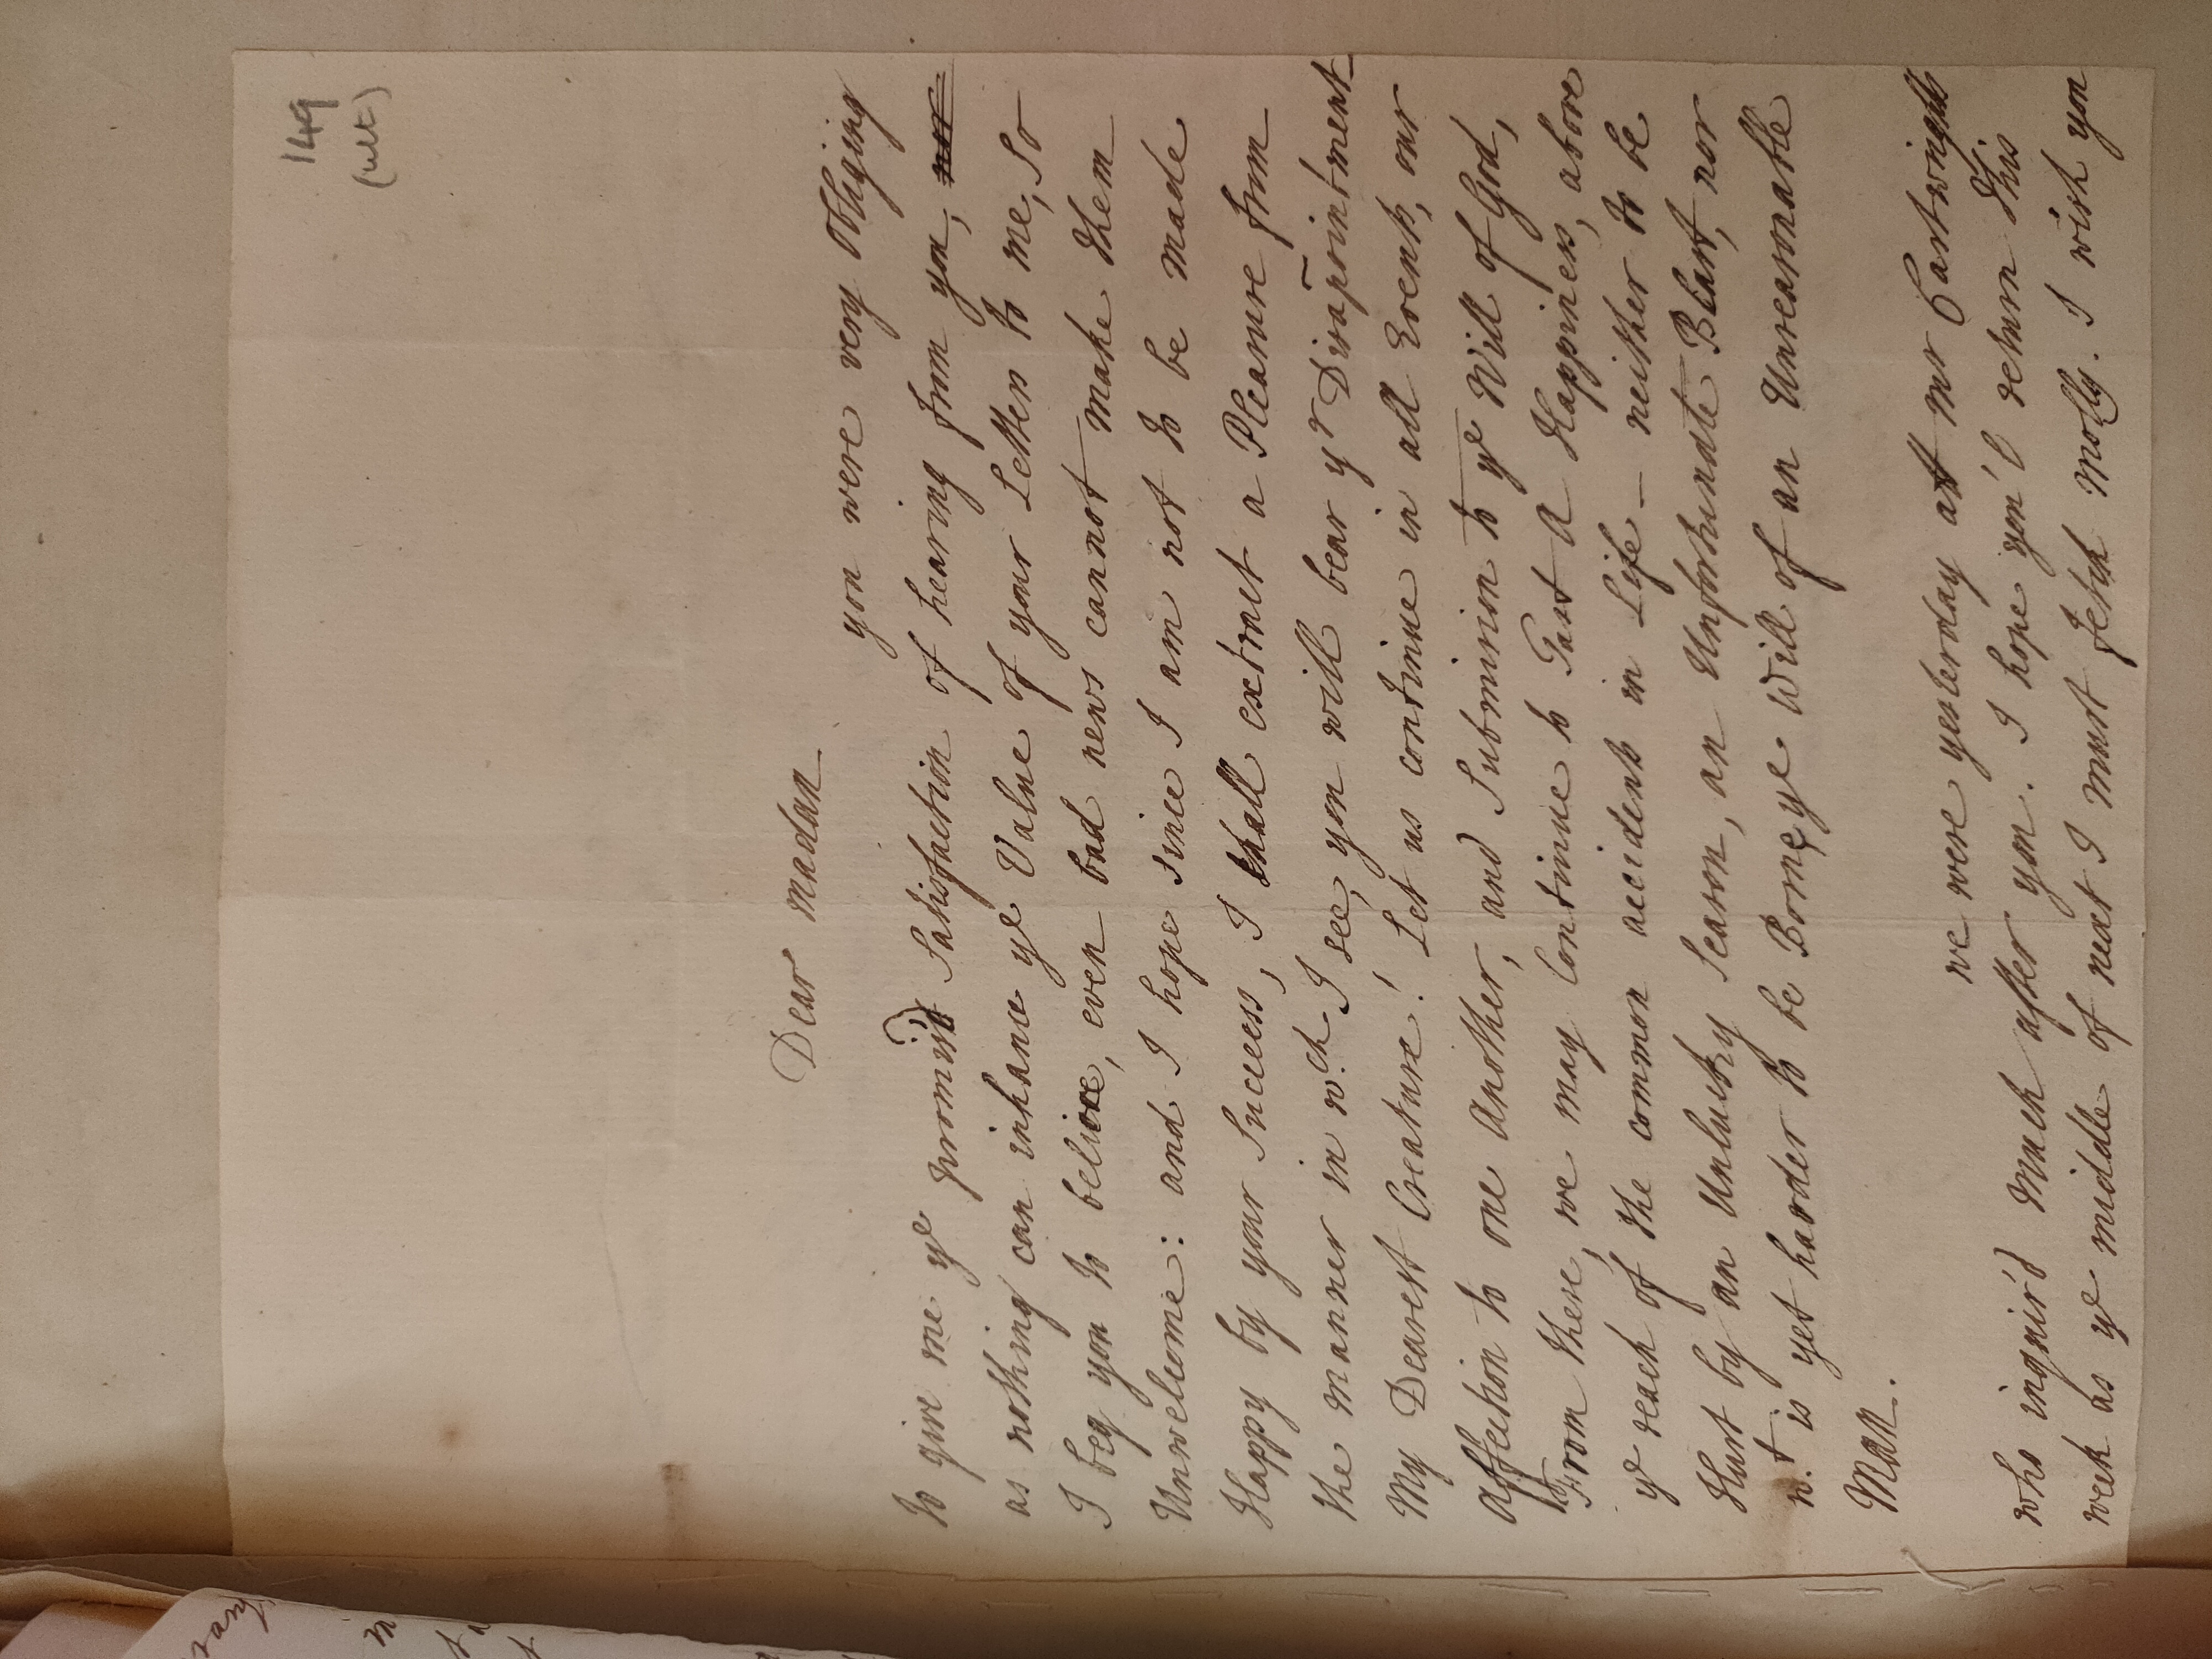 149
(ult)
Dear Madan
you were very Obliging
to give me ye promis'd Satisfaction of hearing from you, nor
as nothing can inhance ye Value of your Letters to me, so
I beg you to believe, even bad news cannot make them
Unwelcome: and I hope since I am not to be made
Happy by your Success, I shall extract a Pleasure from
the manner in wch I see, you will bear yr Disapointment_
My Dearest Creature! Let us continue in all Events, our
affection to one Another, and Submission to ye Will of God,
From these, we may Continue to Tast A Happiness, above
ye reach of the common accidents in Life - neither to be
Hurt by an Unlucky Season, an Unfortunate Blast, nor
wt is yet harder to be Borne, ye Will of an Unreasonable
Man.
we were yesterday att mr Cartwrights
who inquir'd Much after you. I hope you'l return this
week as ye middle of next I must fetch Molly. I wish you